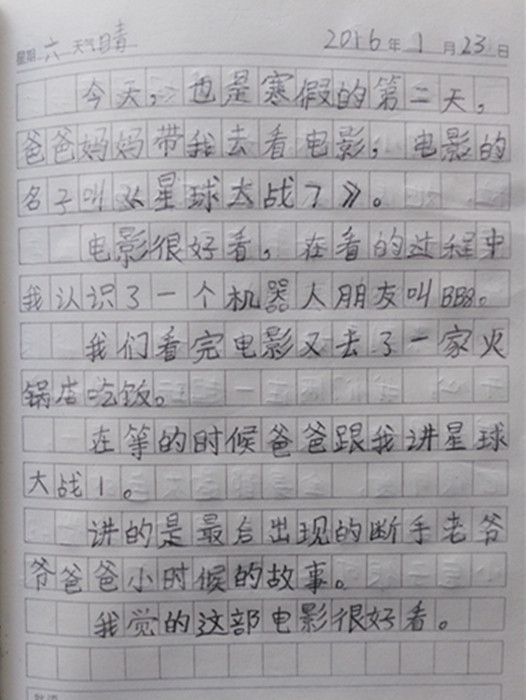 星期 六 天气 晴 2016 年 1 月 23 日
今天，也是寒假的第二天，
爸爸妈妈带我去看电影，电影的
名子叫《星球大战7》。
电影很好看，在看的过程中
我认识了一个机器人朋友叫BB8。
我们看完电影又去了一家火
锅店吃饭。
在等的时候爸爸跟我讲星球
大战1。
讲的是最后出现的断手老爷
爷爸爸小时候的故事。
我觉的这部电影很好看。